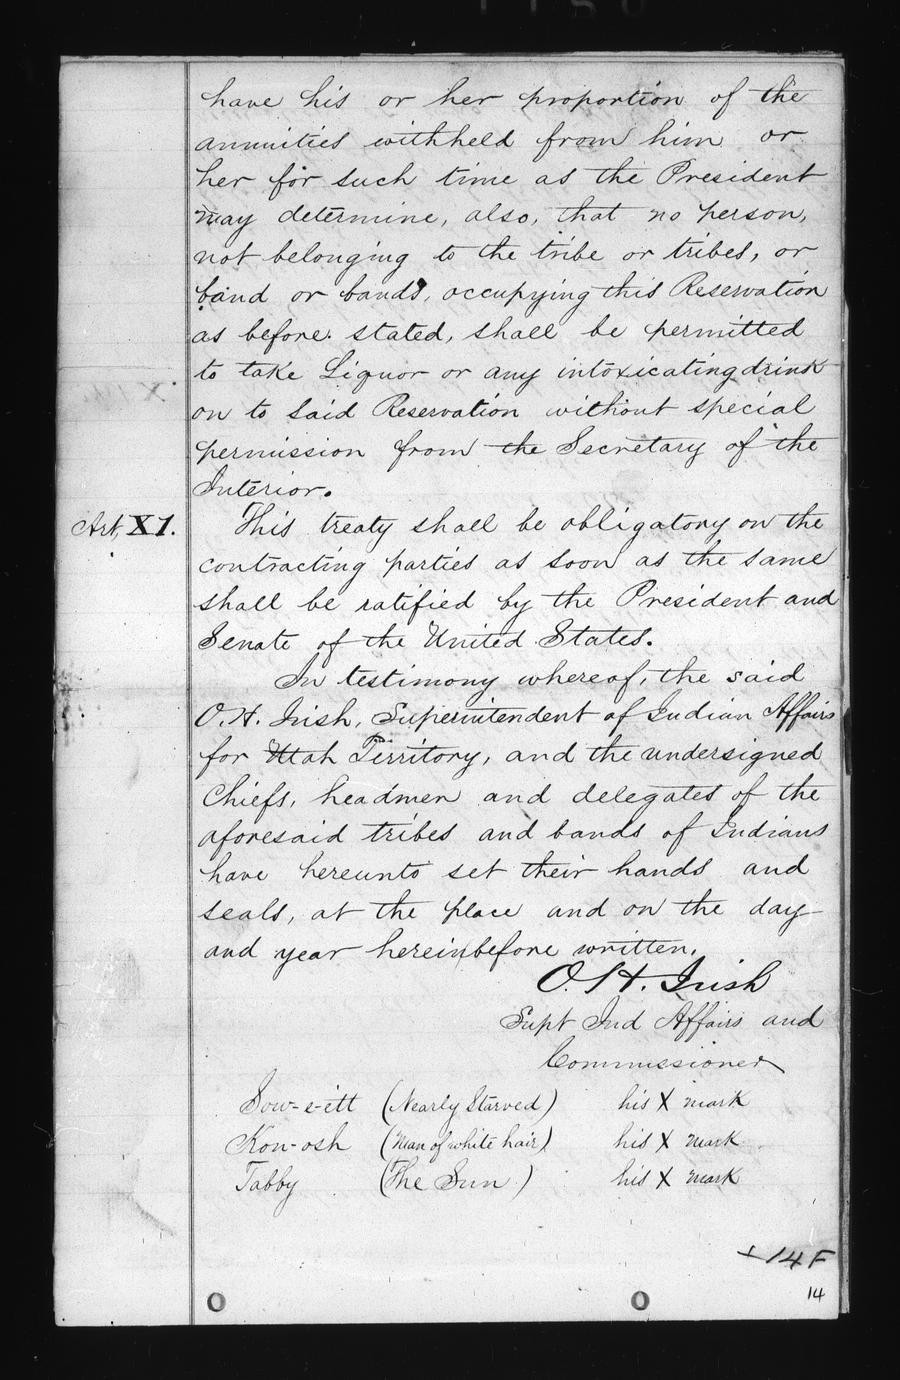 have his or her proportion of the
annuities withheld from him or
her for such time as the President
may determine, also, that no person,
not belonging to the tribe or tribes, or
band or bands, occupying this Reservation
as before stated, shall be permitted
to take Liquor or any intoxicating drink
on to said Reservation without special
permission from the Secretary of the
Interior.
Art. XI. This treaty shall be obligatory on the
contracting parties as soon as the same
shall be ratified by the President and
Senate of the United States.
In testimony whereof, the said
O. H. Irish, Superintendent of Indian Affairs
for Utah Territory, and the undersigned
Chiefs, headmen and delegates of the
aforesaid tribes and bands of Indians
have hereunto set their hands and
seals, at the place and on the day
and year hereinbefore written.
O. H. Irish
Supt Ind Affairs and
Commissioner
Sow-e-ett (Nearly Starved) his X mark
Kon-osh (Man of white hair) his X mark
Tabby (The Sun) his X mark
+14F
14